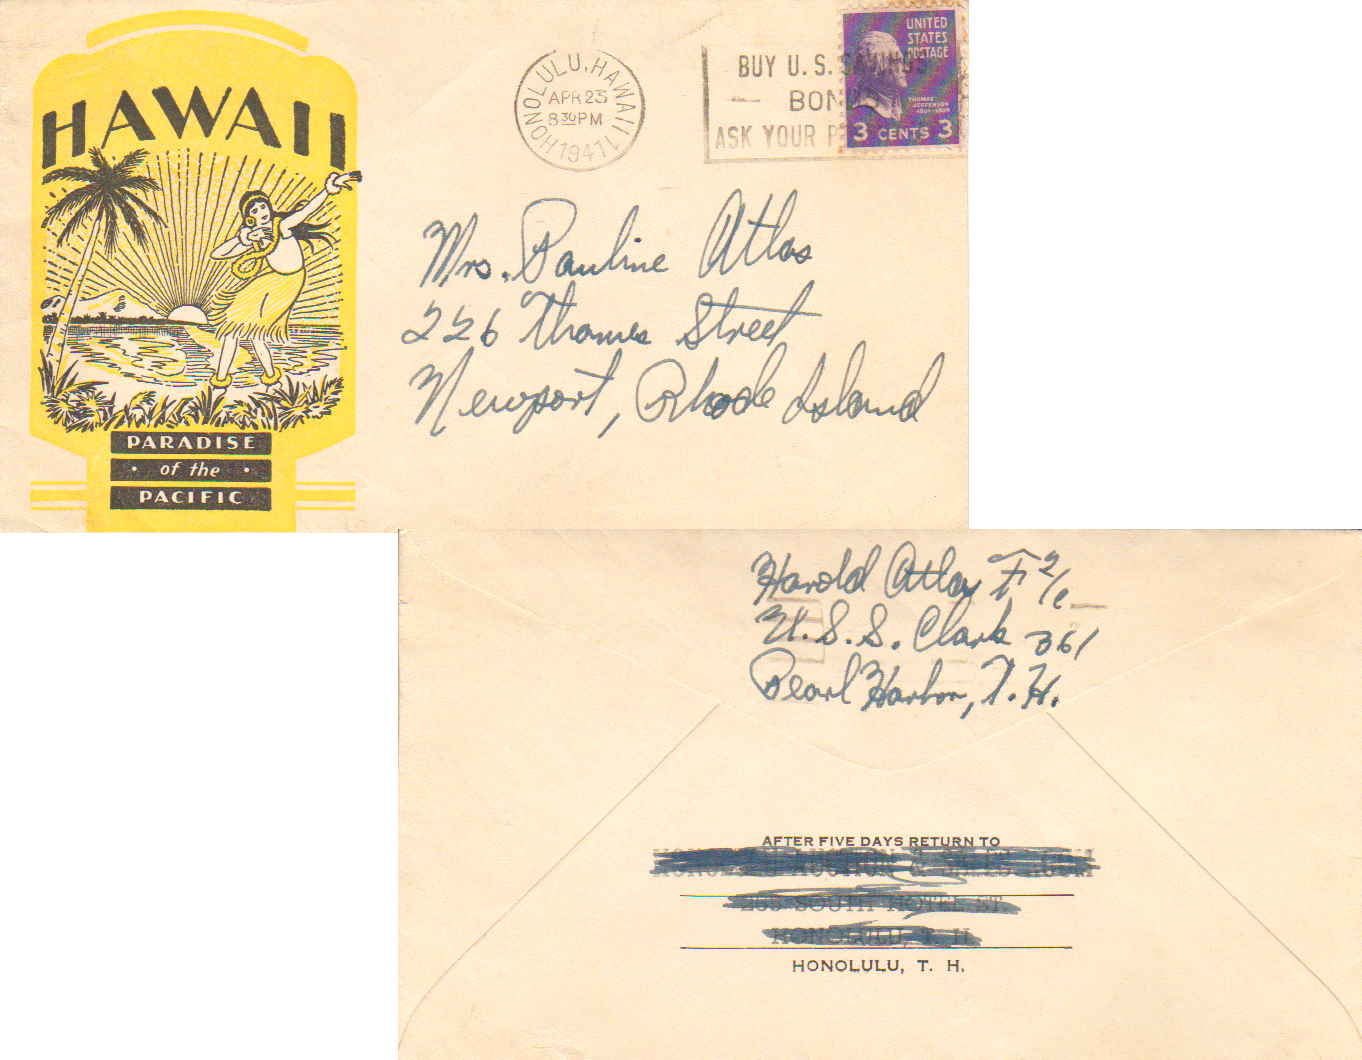 HAWAII
PARADISE
of the
PACIFIC
HONOLULU, HAWAII
APR 23
8 30 PM
1941
BUY U. S. SAVINGS
BON
ASK YOUR P
UNITED
STATES
POSTAGE
THOMAS
JEFFERSON
1801-1809
3 CENTS 3
Mrs. Pauline Atlas
226 Thames Street
Newport, Rhode Island
Harold Atlas F 2/c
U.S.S. Clark 361
Pearl Harbor, T. H.
AFTER FIVE DAYS RETURN TO
HONOLULU AUCTION &
SOUTH HOTEL ST.
HONOLULU, T. H.
HONOLULU, T. H.